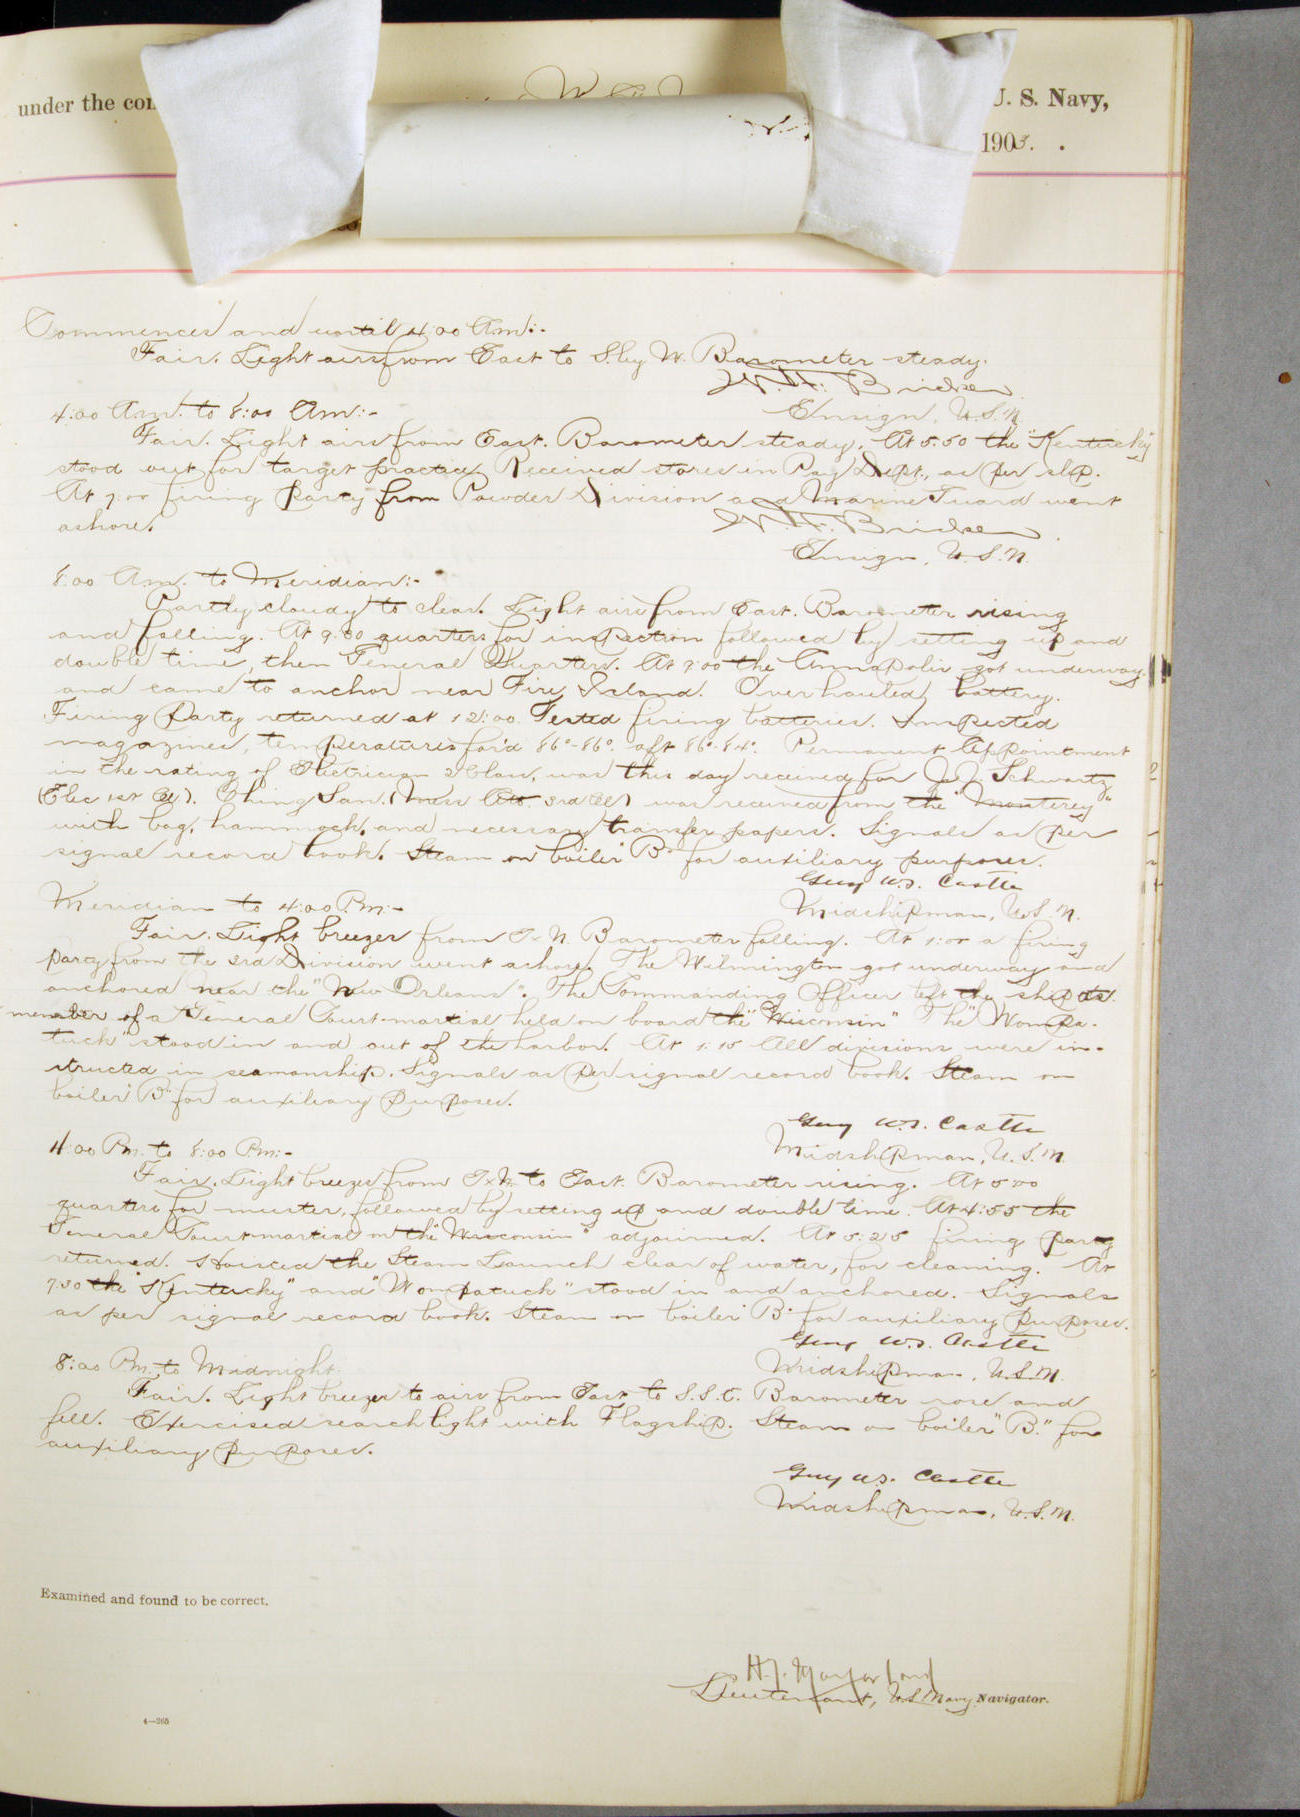 under the con
U. S. Navy,
1903.
Commences and until 4:00 Am:-
Fair. Light airs from East to S. by W. Barometer steady.
4:00 Am. to 8:00 Am:-
Ensign, U.S.N.
Fair. Light airs from East. Barometer steady. At 5:50 the "Kentucky"
stood out for target practice. Received stores in Pay Dept., as per slip.
At 7:00 firing party from Powder Division and Marine Guard went
ashore.
Ensign, U.S.N.
8:00 Am. to Meridian:-
Partly cloudy to clear. Light airs from East. Barometer rising
and falling. At 9:30 quarters for inspection followed by setting up and
double time, then General Quarters. At 9:00 the Annapolis got underway
and came to anchor near Fire Island. Overhauled battery.
Firing Party returned at 12:00. Tested firing batteries. Inspected
magazines, temperatures for'd 86°-86°. aft 86°-84°. Permanent Appointment
in the rating of Electrician 2 Class, was this day received for J. J. Schwartz
(Elec 1st Cl). Ching San (Mess Att. 3rd Cl) was received from the "Monterey"
with bag, hammock, and necessary transfer papers. Signals as per
signal record book. Steam on boiler "B" for auxiliary purposes.
Guy W.S. Castle
Meridian to 4:00 P.m:-
Midshipman, U.S.N.
Fair. Light breezes from E x N. Barometer falling. At 1:00 a firing
party from the 3rd Division went ashore. The Wilmington got underway and
anchored near the "New Orleans". The Commanding Officer left the ship as
member of a General Court-martial held on board the "Wisconsin" The "Wompa-
tuck" stood in and out of the harbor. At 1:15 All divisions were in-
structed in seamanship. Signals as per signal record book. Steam on
boiler "B" for auxiliary purposes.
Guy W.S. Castle
4:00 Pm. to 8:00 Pm:-
Midshipman, U.S.N.
Fair. Light breezes from E x N. to East. Barometer rising. At 5:00
quarters for muster, followed by setting up and double time. At 4:55 the
General Court-martial on the "Wisconsin" adjourned. At 5:25 firing party
returned. Hoisted the Steam Launch clear of water, for cleaning. At
7:30 the "Kentucky" and "Wompatuck" stood in and anchored. Signals
as per signal record book. Steam on boiler "B" for auxiliary purposes.
Guy W.S. Castle
8:00 Pm. to Midnight.
Midshipman, U.S.N.
Fair. Light breezes to airs from East to S.S.E. Barometer rose and
fell. Exercised search light with Flagship. Steam on boiler "B." for
auxiliary purposes.
Guy W.S. Castle
Midshipman, U.S.N.
Examined and found to be correct.
Lieutenant, U.S. Navy, Navigator.
4—265